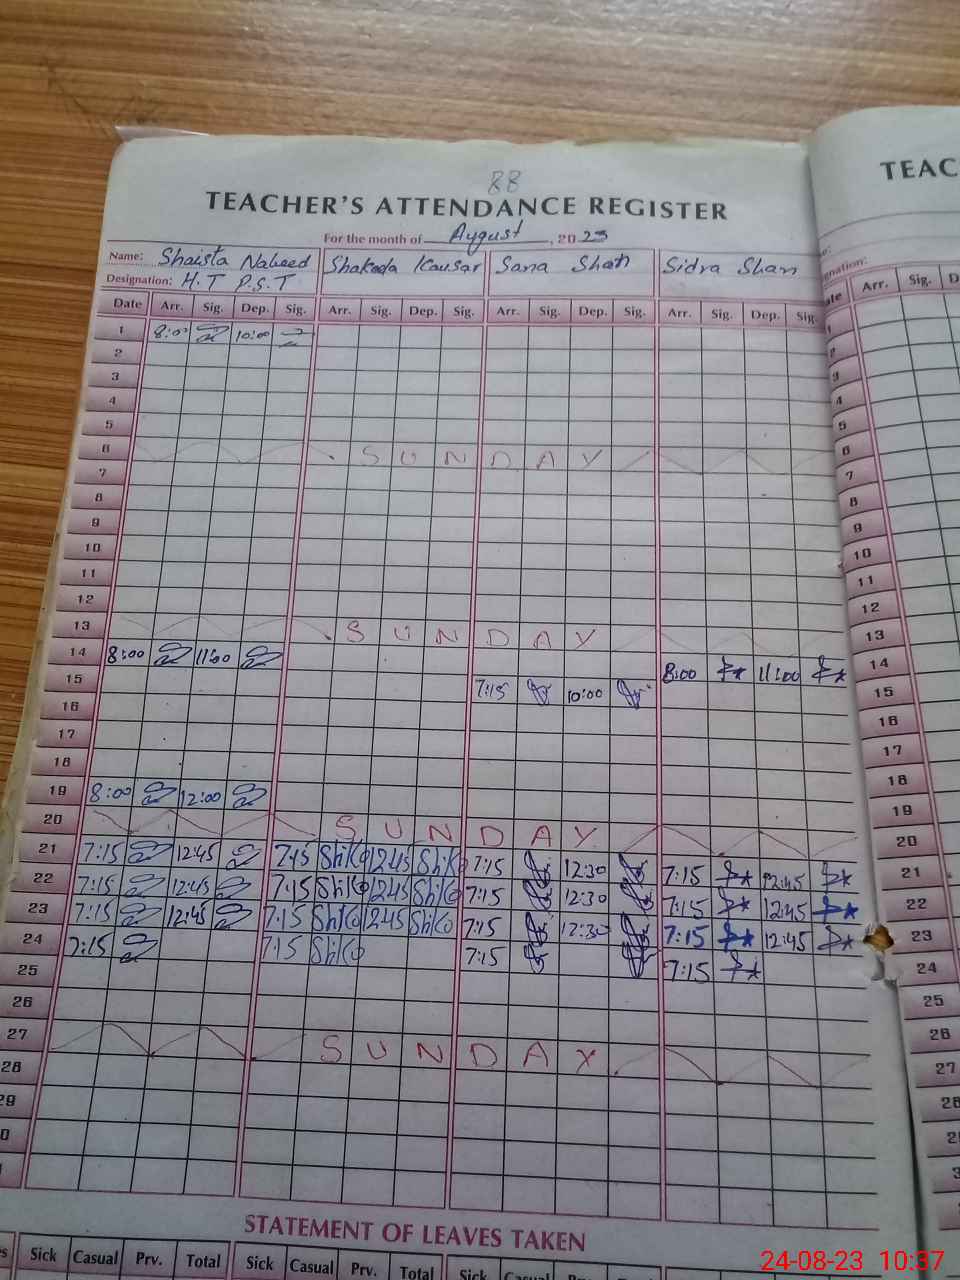 88
TEACHER'S ATTENDANCE REGISTER
TEAC
For the month of August, 20 23
Name: Shaista Naheed Shakeela Kausar Sana Shah Sidra Shan
Designation: H.T P.S.T
Date Arr. Sig. Dep. Sig. Arr. Sig. Dep. Sig. Arr. Sig. Dep. Sig. Arr. Sig. Dep. Sig. Arr. Sig. D
1 8:00 10:00
2
3
4
5
6 SUNDAY
7
8
9
10
11
12
13 SUNDAY
14 8:00 11:00 8:00 11:00
15 7:15 10:00
16
17
18
19 8:00 12:00
20 SUNDAY
21 7:15 12:45 7:15 Sh.K 12:45 Sh.K 7:15 12:30 7:15 12:45
22 7:15 12:45 7:15 Sh.K 12:45 Sh.K 7:15 12:30 7:15 12:45
23 7:15 12:45 7:15 Sh.K 12:45 Sh.K 7:15 12:30 7:15 12:45
24 7:15 7:15 Sh.K 7:15 7:15
25
26
27 SUNDAY
28
29
0
STATEMENT OF LEAVES TAKEN
s Sick Casual Prv. Total Sick Casual Prv. Total Sick Casual Prv. Total
24-08-23 10:37